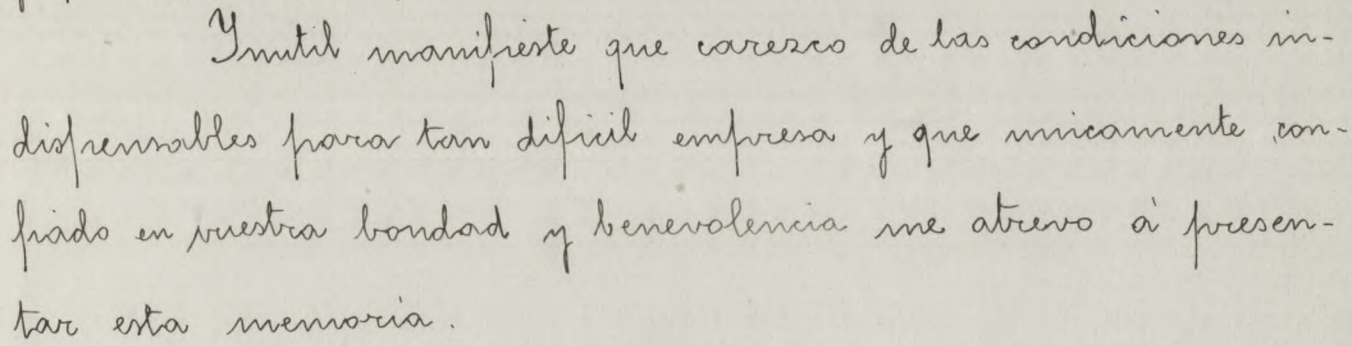 Ynutil manifieste que carezco de las condiciones in-
dispensables para tan dificil empresa y que unicamente con-
fiado en vuestra bondad y benevolencia me atrevo á presen-
tar esta memoria.